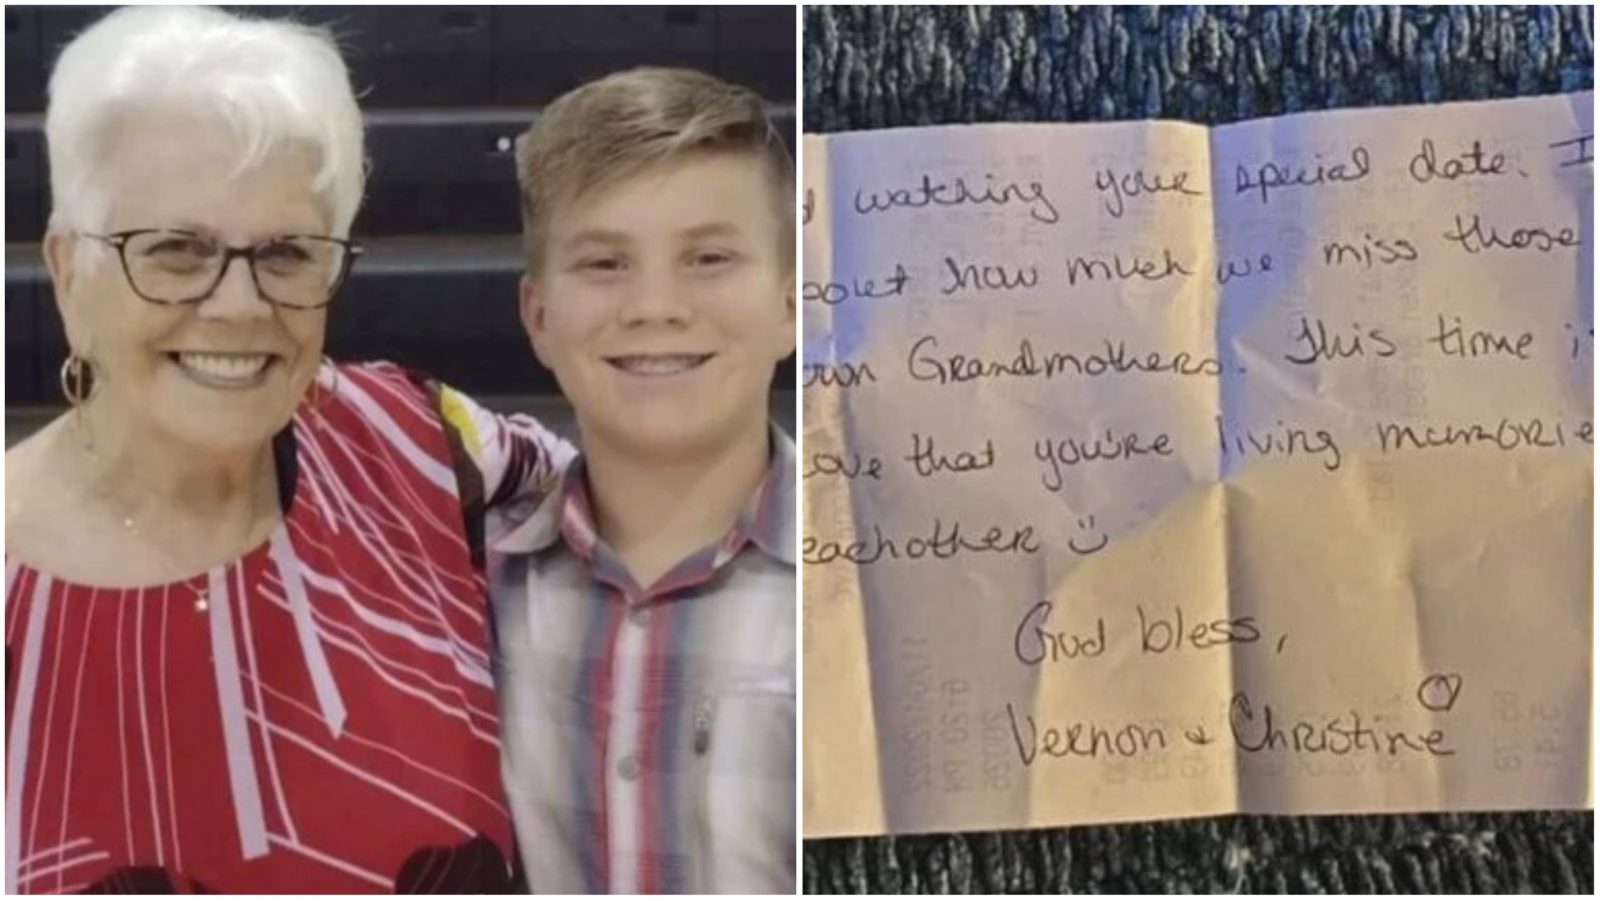 watching your special date. I
how much we miss those
own Grandmothers. This time i
that you're living memorie
eachother :)
God bless,
Vernon & Christine